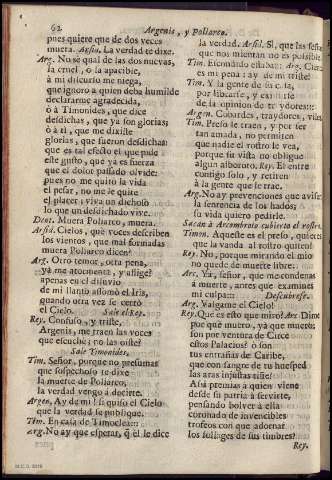 62 Argenis, y Poliarco.
pues quiere que de dos veces
muera. Arsid. La verdad te dixe.
Arg. No sé qual de las dos nuevas,
la cruel, o la apacible,
à mi discurso me niega,
que ignoro a quien deba humilde
declararme agradecida,
ò à Timonides, que dice
desdichas, que ya son glorias;
ò à ti, que me dixiste
glorias, que fueron desdichas:
que es tal efecto el que pide
este gusto, que yà es fuerza
que el dolor passado olvide:
pues no me quitò la vida
el pesar, no me le quite
el placer; viva un dichoso
lo que un desdichado vive.
Dent. Muera Poliarco, muera.
Arsid. Cielos, que voces describen
los vientos, que mal formadas
muera Poliarco dicen?
Arg. Otro temor, otra pena,
ya me atormenta, y aflige?
apenas en el diluvio
de mi llanto assomò el Iris,
quando otra vez se cerrò
el Cielo. Sale el Rey.
Rey. Confuso, y triste,
Argenis, me traen las voces
que escuchè; no las oiste?
Sale Timonides.
Tim. Señor, porque no presumas
que sospechoso te dixe
la muerte de Poliarco,
la verdad vengo à decirte.
Argen. Ay de mi! si quiso el Cielo
que la verdad se publique.
Tim. En casa de Timoclea::
Arg. No ay que esperar, q̃ el le dice
la verdad. Arsid. Sì, que las señas
que nos mientan no es possible.
Tim. Escondido estaba:: Arg. Cierta
es mi pena: ay de mi triste!
Tim. Y la gente de la casa,
por librarse, y eximirse
de la opinion de traydores::
Argen. Cobardes, traydores, viles.
Tim. Preso le traen, y por ser
tan amada, no permiten
que nadie el rostro le vea,
porque su vista no obligue
algun alboroto. Rey. El entre
contigo solo, y retiren
à la gente que le trae.
Arg. No ay prevenciones que avisen
la sentencia de los hados; si
su vida quiero pedirle.
Sacan à Arcombroto cubierto el rostro.
Timon. Aqueste es el preso, quieres
que la vanda al rostro quiten?
Rey. No, porque mirando el mio
no quede de muerte libre.
Arc. Ya, señor, que me condenas
à muerte, antes que examines
mi culpa:: Descubrese.
Arg. Valgame el Cielo!
Rey. Què es esto que miro? Arc. Dime
por què muero, ya que muero;
son por ventura de Circe
estos Palacios? ò son
tus entrañas de Caribe,
que con sangre de tu huesped
las aras injustas tiñe?
Assi premias à quien viene
desde su patria à servirte,
pensando bolver à ella
coronado de invencibles
trofeos con que adornar
los follages de sus timbres?
Rey.